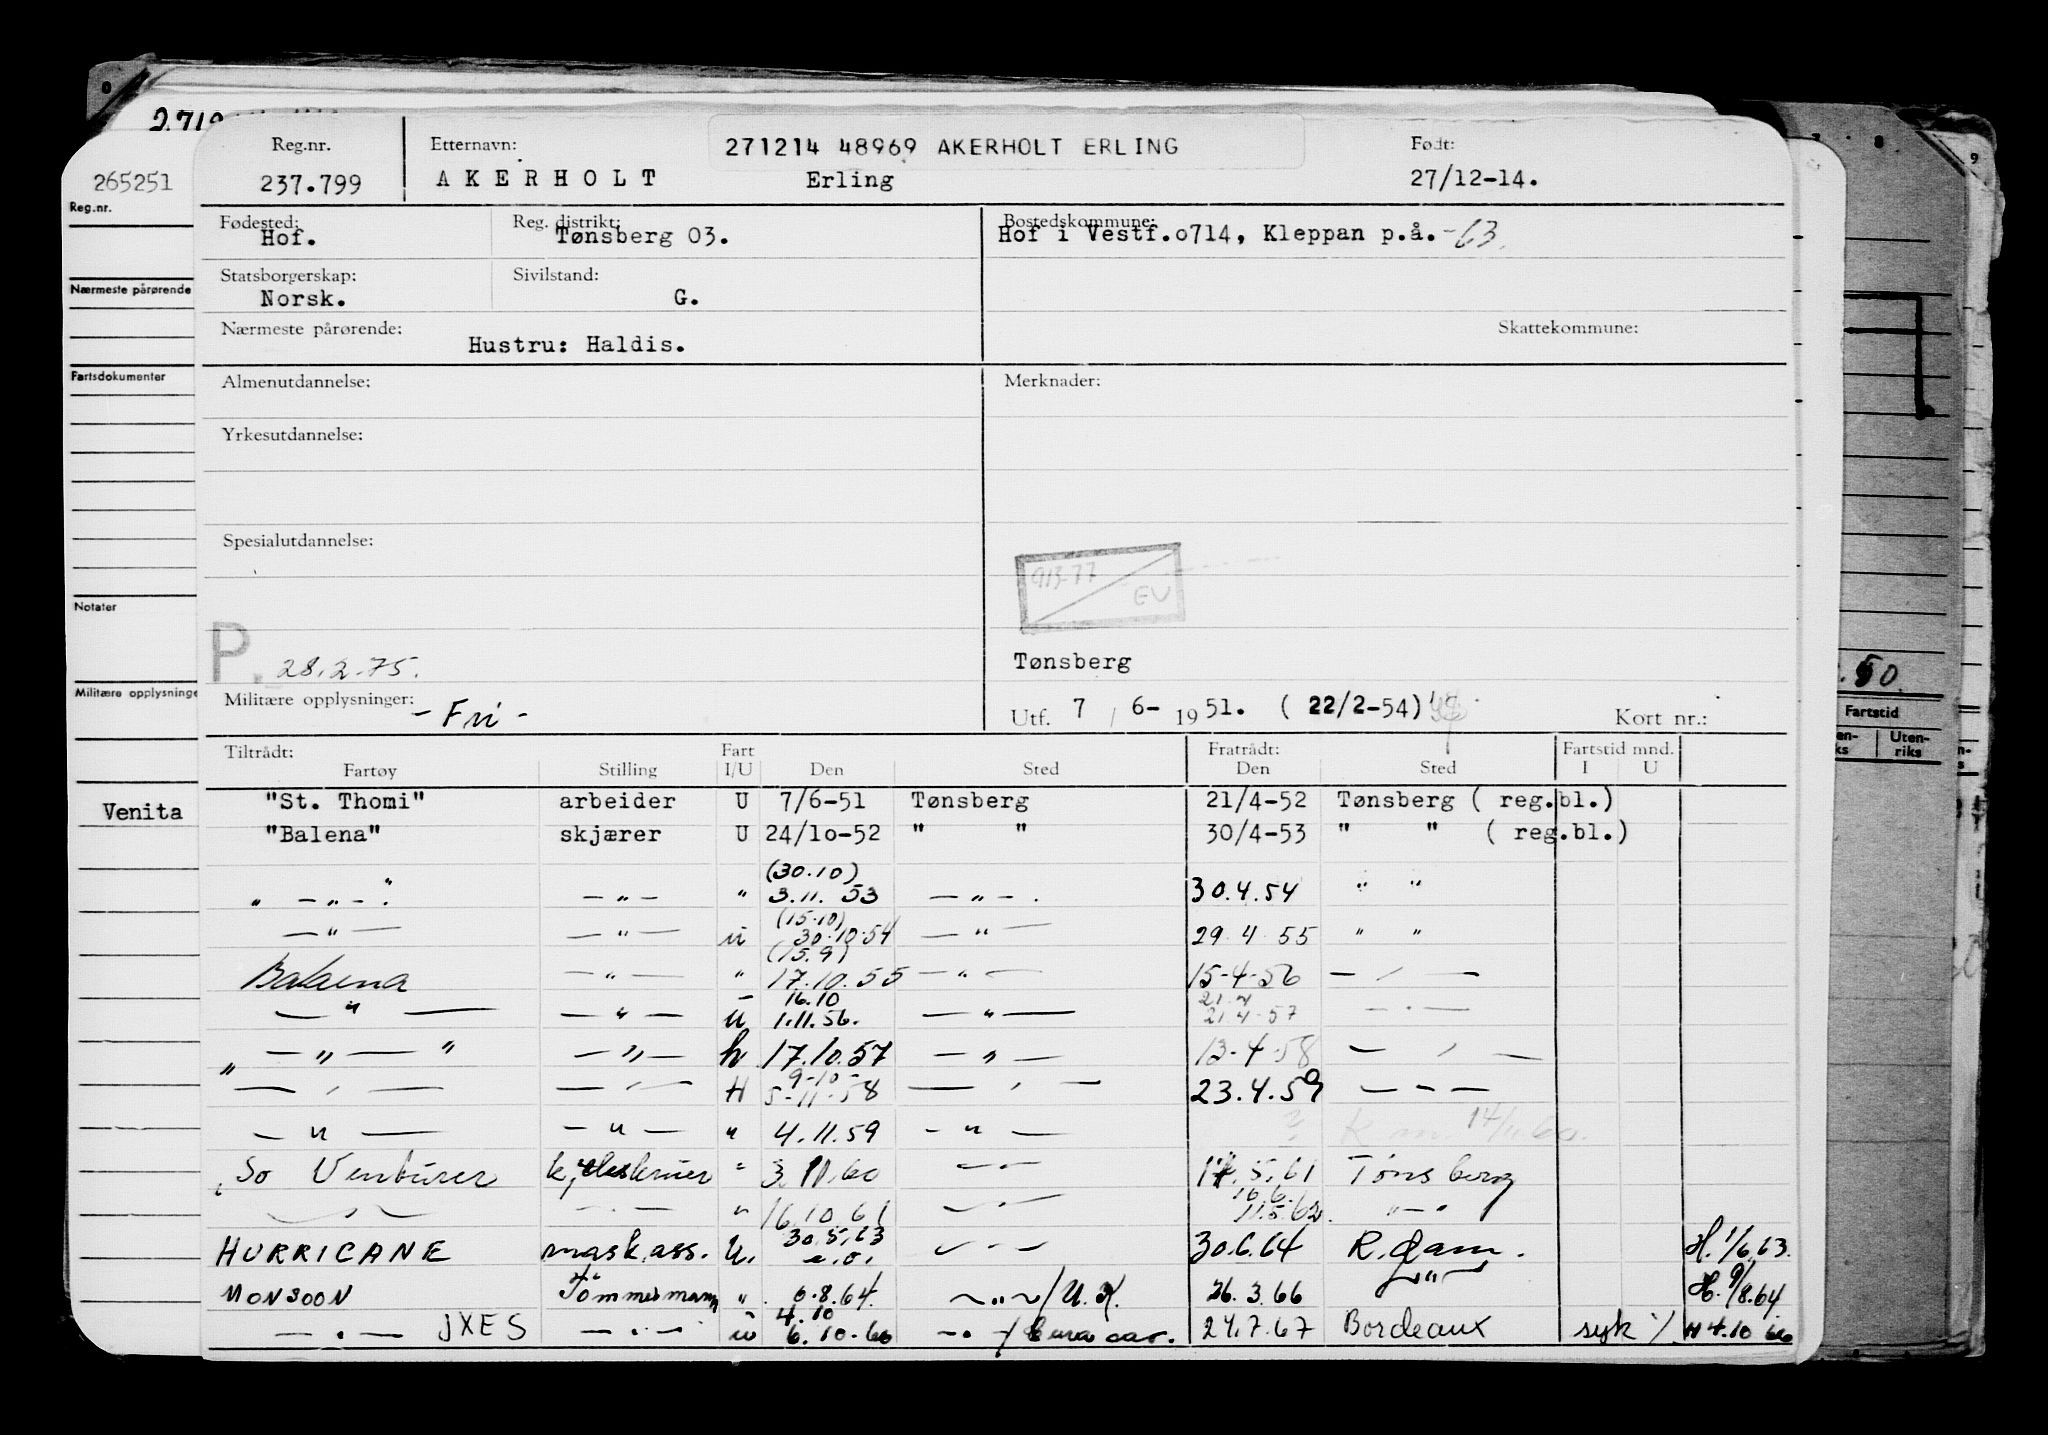 265251
Reg.nr.
Nærmeste pårørende
Fartsdokumenter
Notater
Militære opplysninge
Venita
Reg.nr. Etternavn: 271214 48969 AKERHOLT ERLING Født:
237.799 AKERHOLT Erling 27/12-14.
Fødested: Reg. distrikt: Bostedskommune:
Hof. Tønsberg 03. Hof i Vestf.o714, Kleppan p.å. -63.
Statsborgerskap: Sivilstand:
Norsk. G.
Nærmeste pårørende: Skattekommune:
Hustru: Haldis.
Almenutdannelse: Merknader:
Yrkesutdannelse:
Spesialutdannelse:
913-77
EV
P. 28.2.75. Tønsberg
Militære opplysninger: - Fri - Utf. 7 / 6- 1951. ( 22/2-54) Kort nr.:
Tiltrådt: Fart Fratrådt: Fartstid mnd.
Fartøy Stilling I/U Den Sted Den Sted I U
"St. Thomi" arbeider U 7/6-51 Tønsberg 21/4-52 Tønsberg ( reg.bl.)
"Balena" skjærer U 24/10-52 " " 30/4-53 " " ( reg.bl.)
(30.10)
" — " — " — " — " 3.11.53 — " — . 30.4.54 " "
(15.10)
— " — — " — u 30.10.54 — " — 29.4.55 " "
(15.9)
Balaena — " — " 17.10.55 — " — 15-4-56 — " —
16.10 21.4
— " — — " — u 1.11.56. — " — 21.4.57 — " —
" — " — " — " — h 17.10.57 — " — 13-4-58 — " —
9-10-
— " — — " — H 5-11-58 — " — 23.4.59 — " —
— " — — " — " 4.11.59 — " — 14/11.60.
So Venturer " 3.11.60 — " — 17.5.61 Tønsberg
16.6.
— " — — " — " 16.10.61 — " — 11.5.62. — " —
30.5.63
HURRICANE mask.ass. U. — " — 30.6.64 R.dam. H. 1/6.63.
MONSOON Tømmermann " 6.8.64. — " — /U.K. 26.3.66 — " — H. 9/8.64
4.10
— " — JXES — " — u 6.10.66 — " — /Curacao. 24.7.67 Bordeaux syk H 4.10 66
.50
Fartstid
Uten-
riks